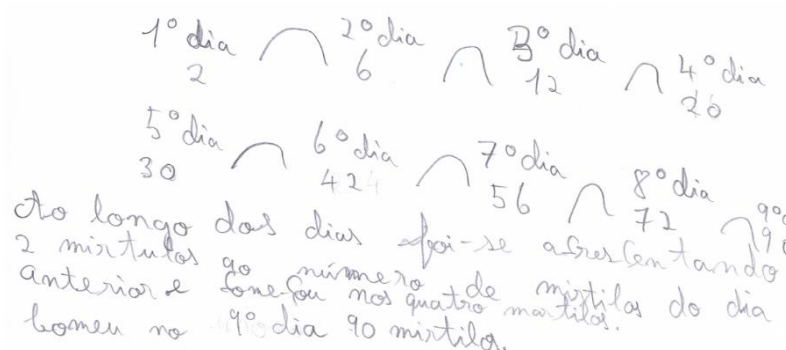 1º dia 2º dia 3º dia 4º dia
2 6 12 20
5º dia 6º dia 7º dia 8º dia 9º
30 42 56 72 9
Ao longo dos dias foi-se acrescentando
2 mirtulos ao número de mirtilos do dia
anterior e começou nos quatro martilos.
Comeu no 9º dia 90 mirtilos.